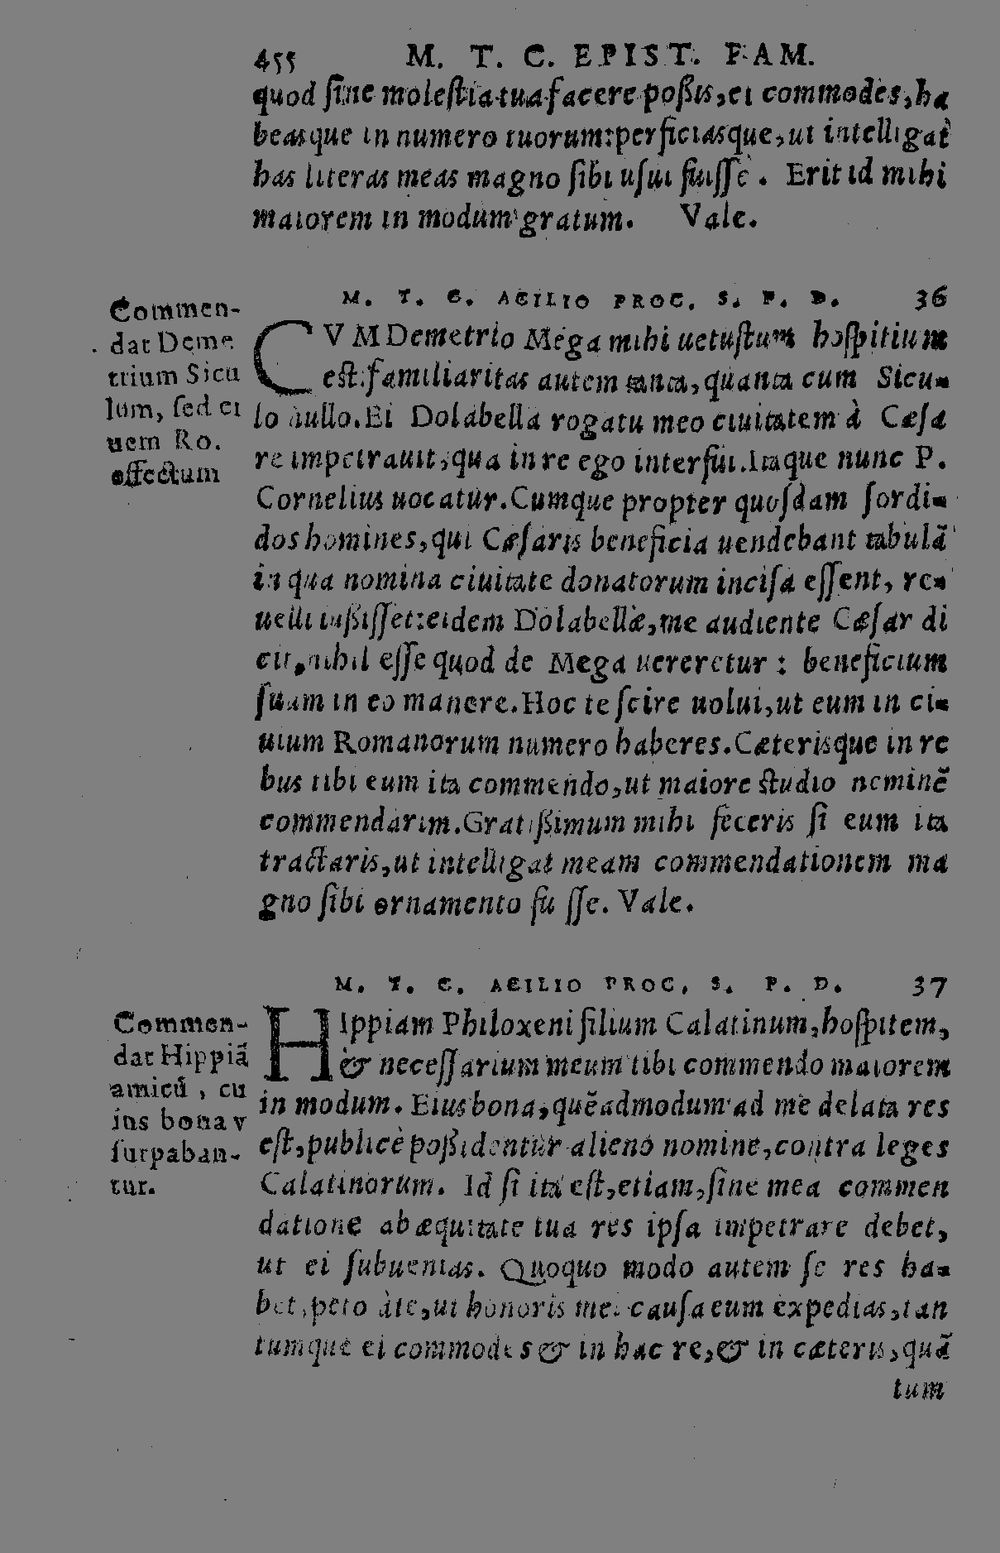 455 M. T. C. EPIST. FAM.
quod ſine moleſtia tua facere poßis, ei commodes, ha
beasque in numero tuorum: perficiasque, ut intelligat
has literas meas magno ſibi uſui fuiſſe. Erit id mihi
maiorem in modum gratum. Vale.
M. T. C. ACILIO PROC. S. P. D. 36
Commen-
dat Deme
trium Sicu
lum, ſed ci
uem Ro.
effectum
CVM Demetrio Mega mihi uetuſtum hoſpitium
eſt: familiaritas autem tanta, quanta cum Sicu-
lo nullo. Ei Dolabella rogatu meo ciuitatem à Cæſa
re impetrauit, qua in re ego interfui. Itaque nunc P.
Cornelius uocatur. Cumque propter quoſdam ſordi-
dos homines, qui Cæſaris beneficia uendebant tabulā
in qua nomina ciuitate donatorum inciſa eſſent, re-
uelli iußiſſet: eidem Dolabellæ, me audiente Cæſar di
cit, nihil eſſe quod de Mega uereretur: beneficium
ſuum in eo manere. Hoc te ſcire uolui, ut eum in ci-
uium Romanorum numero haberes. Cæterisque in re
bus tibi eum ita commendo, ut maiore ſtudio neminē
commendarim. Gratißimum mihi feceris ſi eum ita
tractaris, ut intelligat meam commendationem ma
gno ſibi ornamento fuiſſe. Vale.
M. T. C. ACILIO PROC. S. P. D. 37
Commen-
dat Hippiā
amicū, cu
ius bona v
ſurpaban-
tur.
HIppiam Philoxeni filium Calatinum, hoſpitem,
& neceſſarium meum tibi commendo maiorem
in modum. Eius bona, quēadmodum ad me delata res
eſt, publicè poßidentur alieno nomine, contra leges
Calatinorum. Id ſi ita eſt, etiam, ſine mea commen
datione ab æquitate tua res ipſa impetrare debet,
ut ei ſubuenias. Quoquo modo autem ſe res ha-
bet, peto à te, ut honoris mei cauſa eum expedias, tan
tumque ei commodes & in hac re, & in cæteris, quā
tum